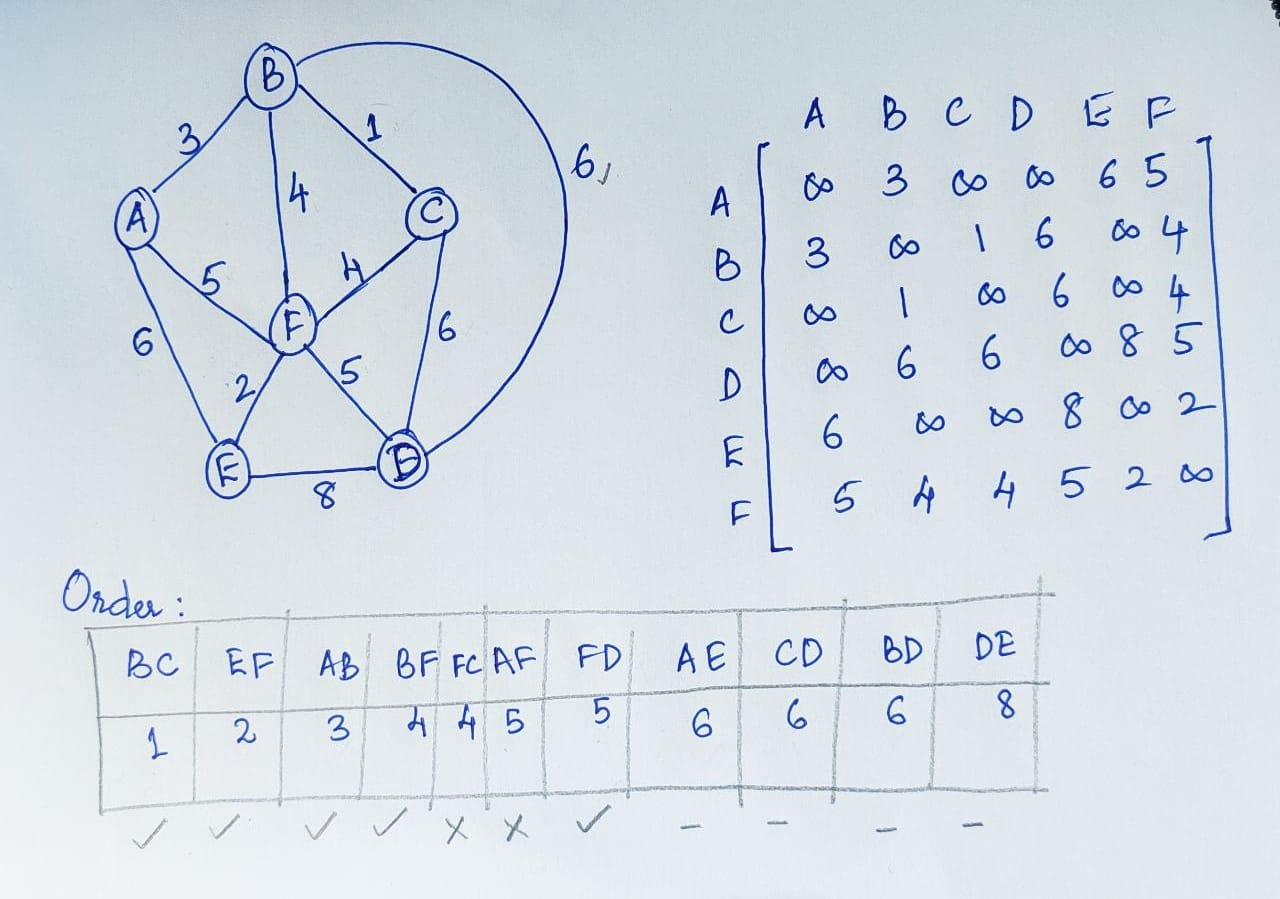 B
3
1
6,
4
A
C
5
4
F
6
6
2
5
E
D
8
A B C D E F
A ∞ 3 ∞ ∞ 6 5
B 3 ∞ 1 6 ∞ 4
C ∞ 1 ∞ 6 ∞ 4
D ∞ 6 6 ∞ 8 5
E 6 ∞ ∞ 8 ∞ 2
F 5 4 4 5 2 ∞
Order :
BC EF AB BF FC AF FD AE CD BD DE
1 2 3 4 4 5 5 6 6 6 8
✓ ✓ ✓ ✓ × × ✓ – – – –